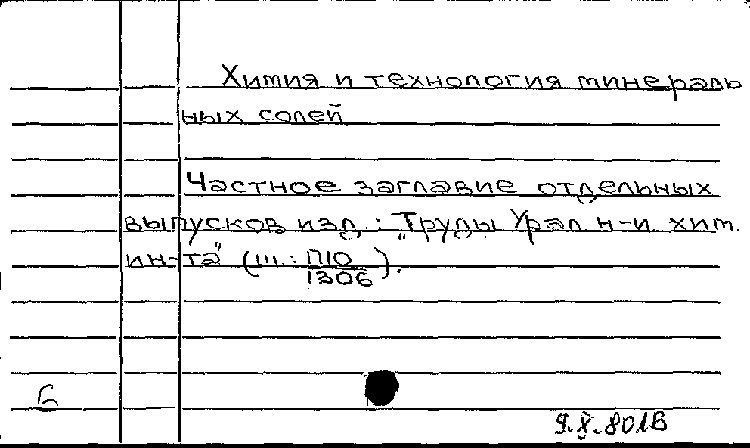 Химия и технология минераль
ных солей
Частное заглавие отдельных
выпусков изд.: „Труды Урал. н-и. хим.
ин-та" (ш.: П10
1306).
6
9.X.80